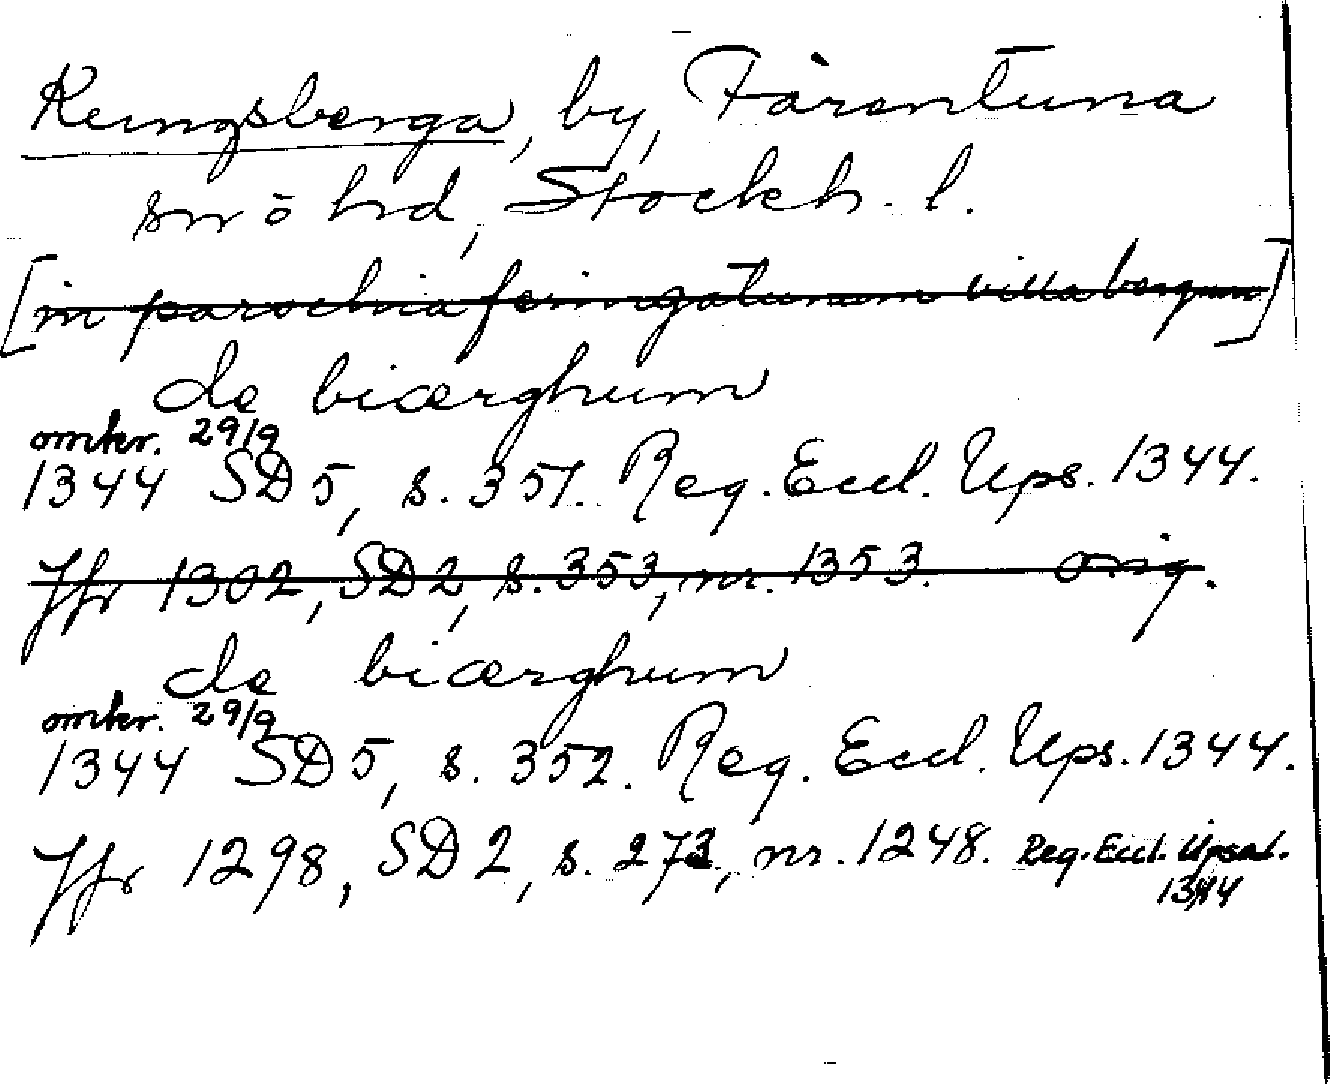 Kungsberga, by, Färentuna
sn o hd, Stockh. l.
[in parochia feringatunum villa bergum]
de biærghum
omkr. 29/9
1344 SD 5, s. 351. Reg. Eccl. Ups. 1344.
Jfr 1302, SD 2, s. 353, nr. 1353. orig.
de biærghum
omkr. 29/9
1344 SD 5, s. 352. Reg. Eccl. Ups. 1344.
Jfr 1298, SD 2, s. 273, nr. 1248. Reg. Eccl. Upsal.
1344